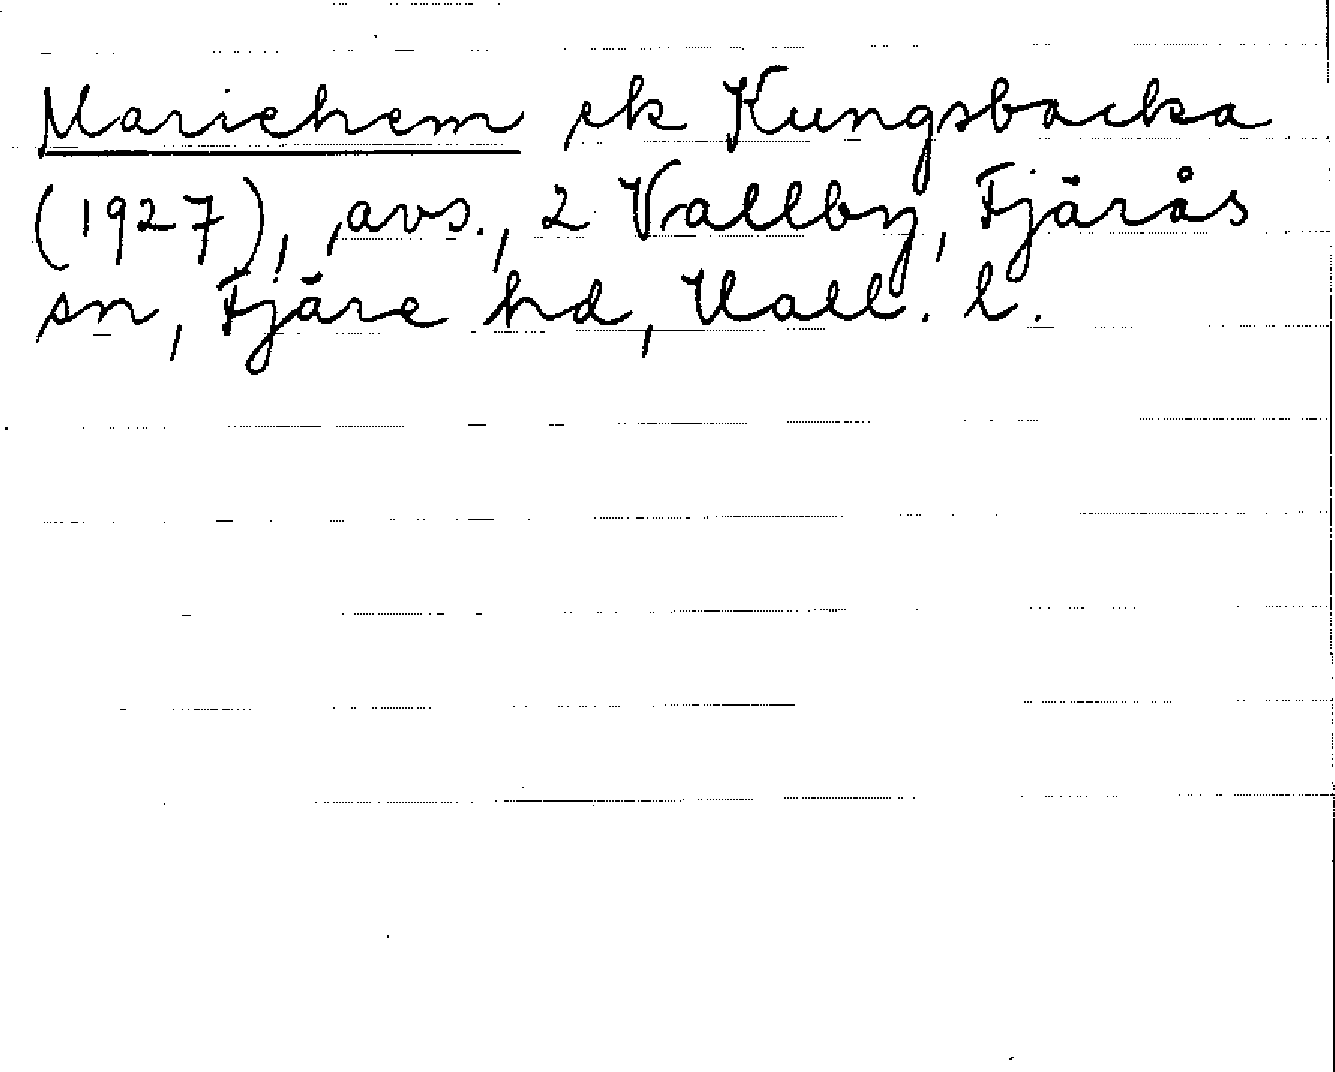 Mariehem ek Kungsbacka
(1927), avs., 2 Vallby, Fjärås
sn, Fjäre hd, Hall. l.